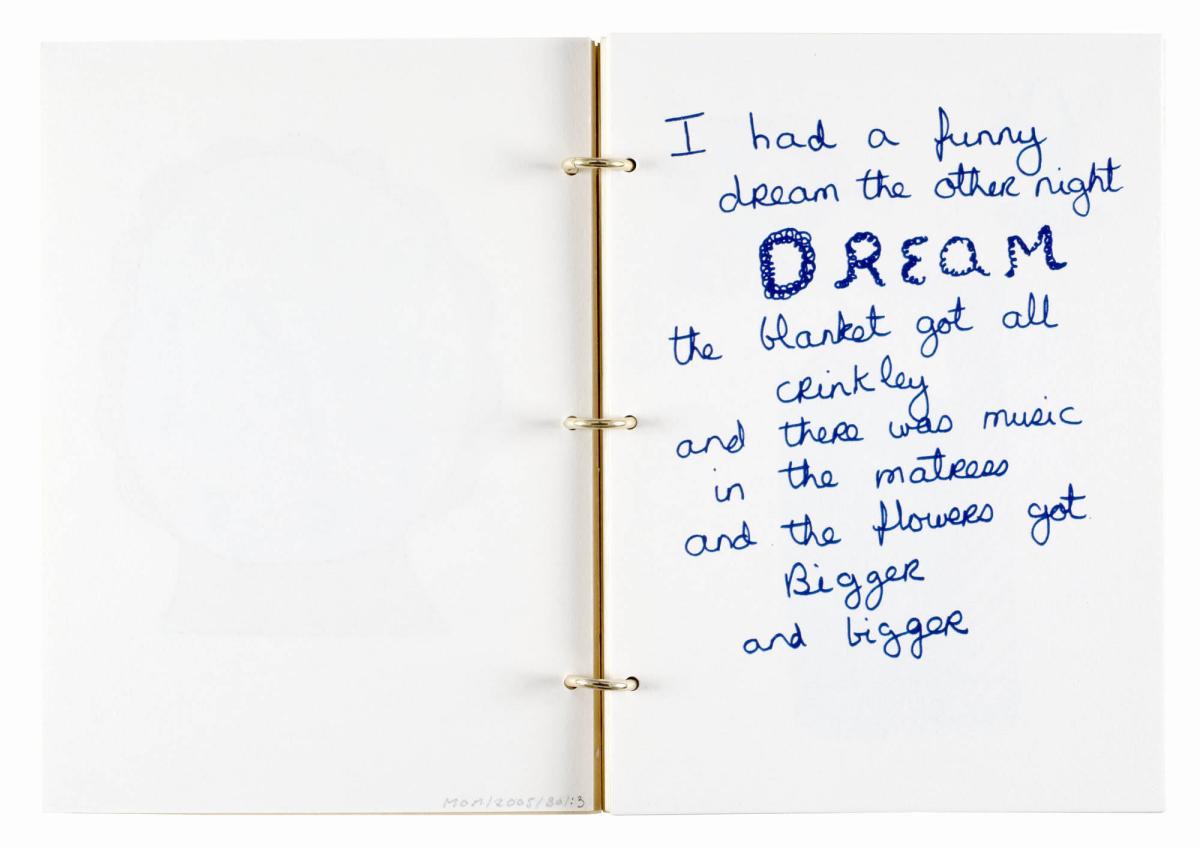 MOM/2005/30/:3
I had a funny
dream the other night
DREAM
the blanket got all
crinkley
and there was music
in the matress
and the flowers got
Bigger
and bigger